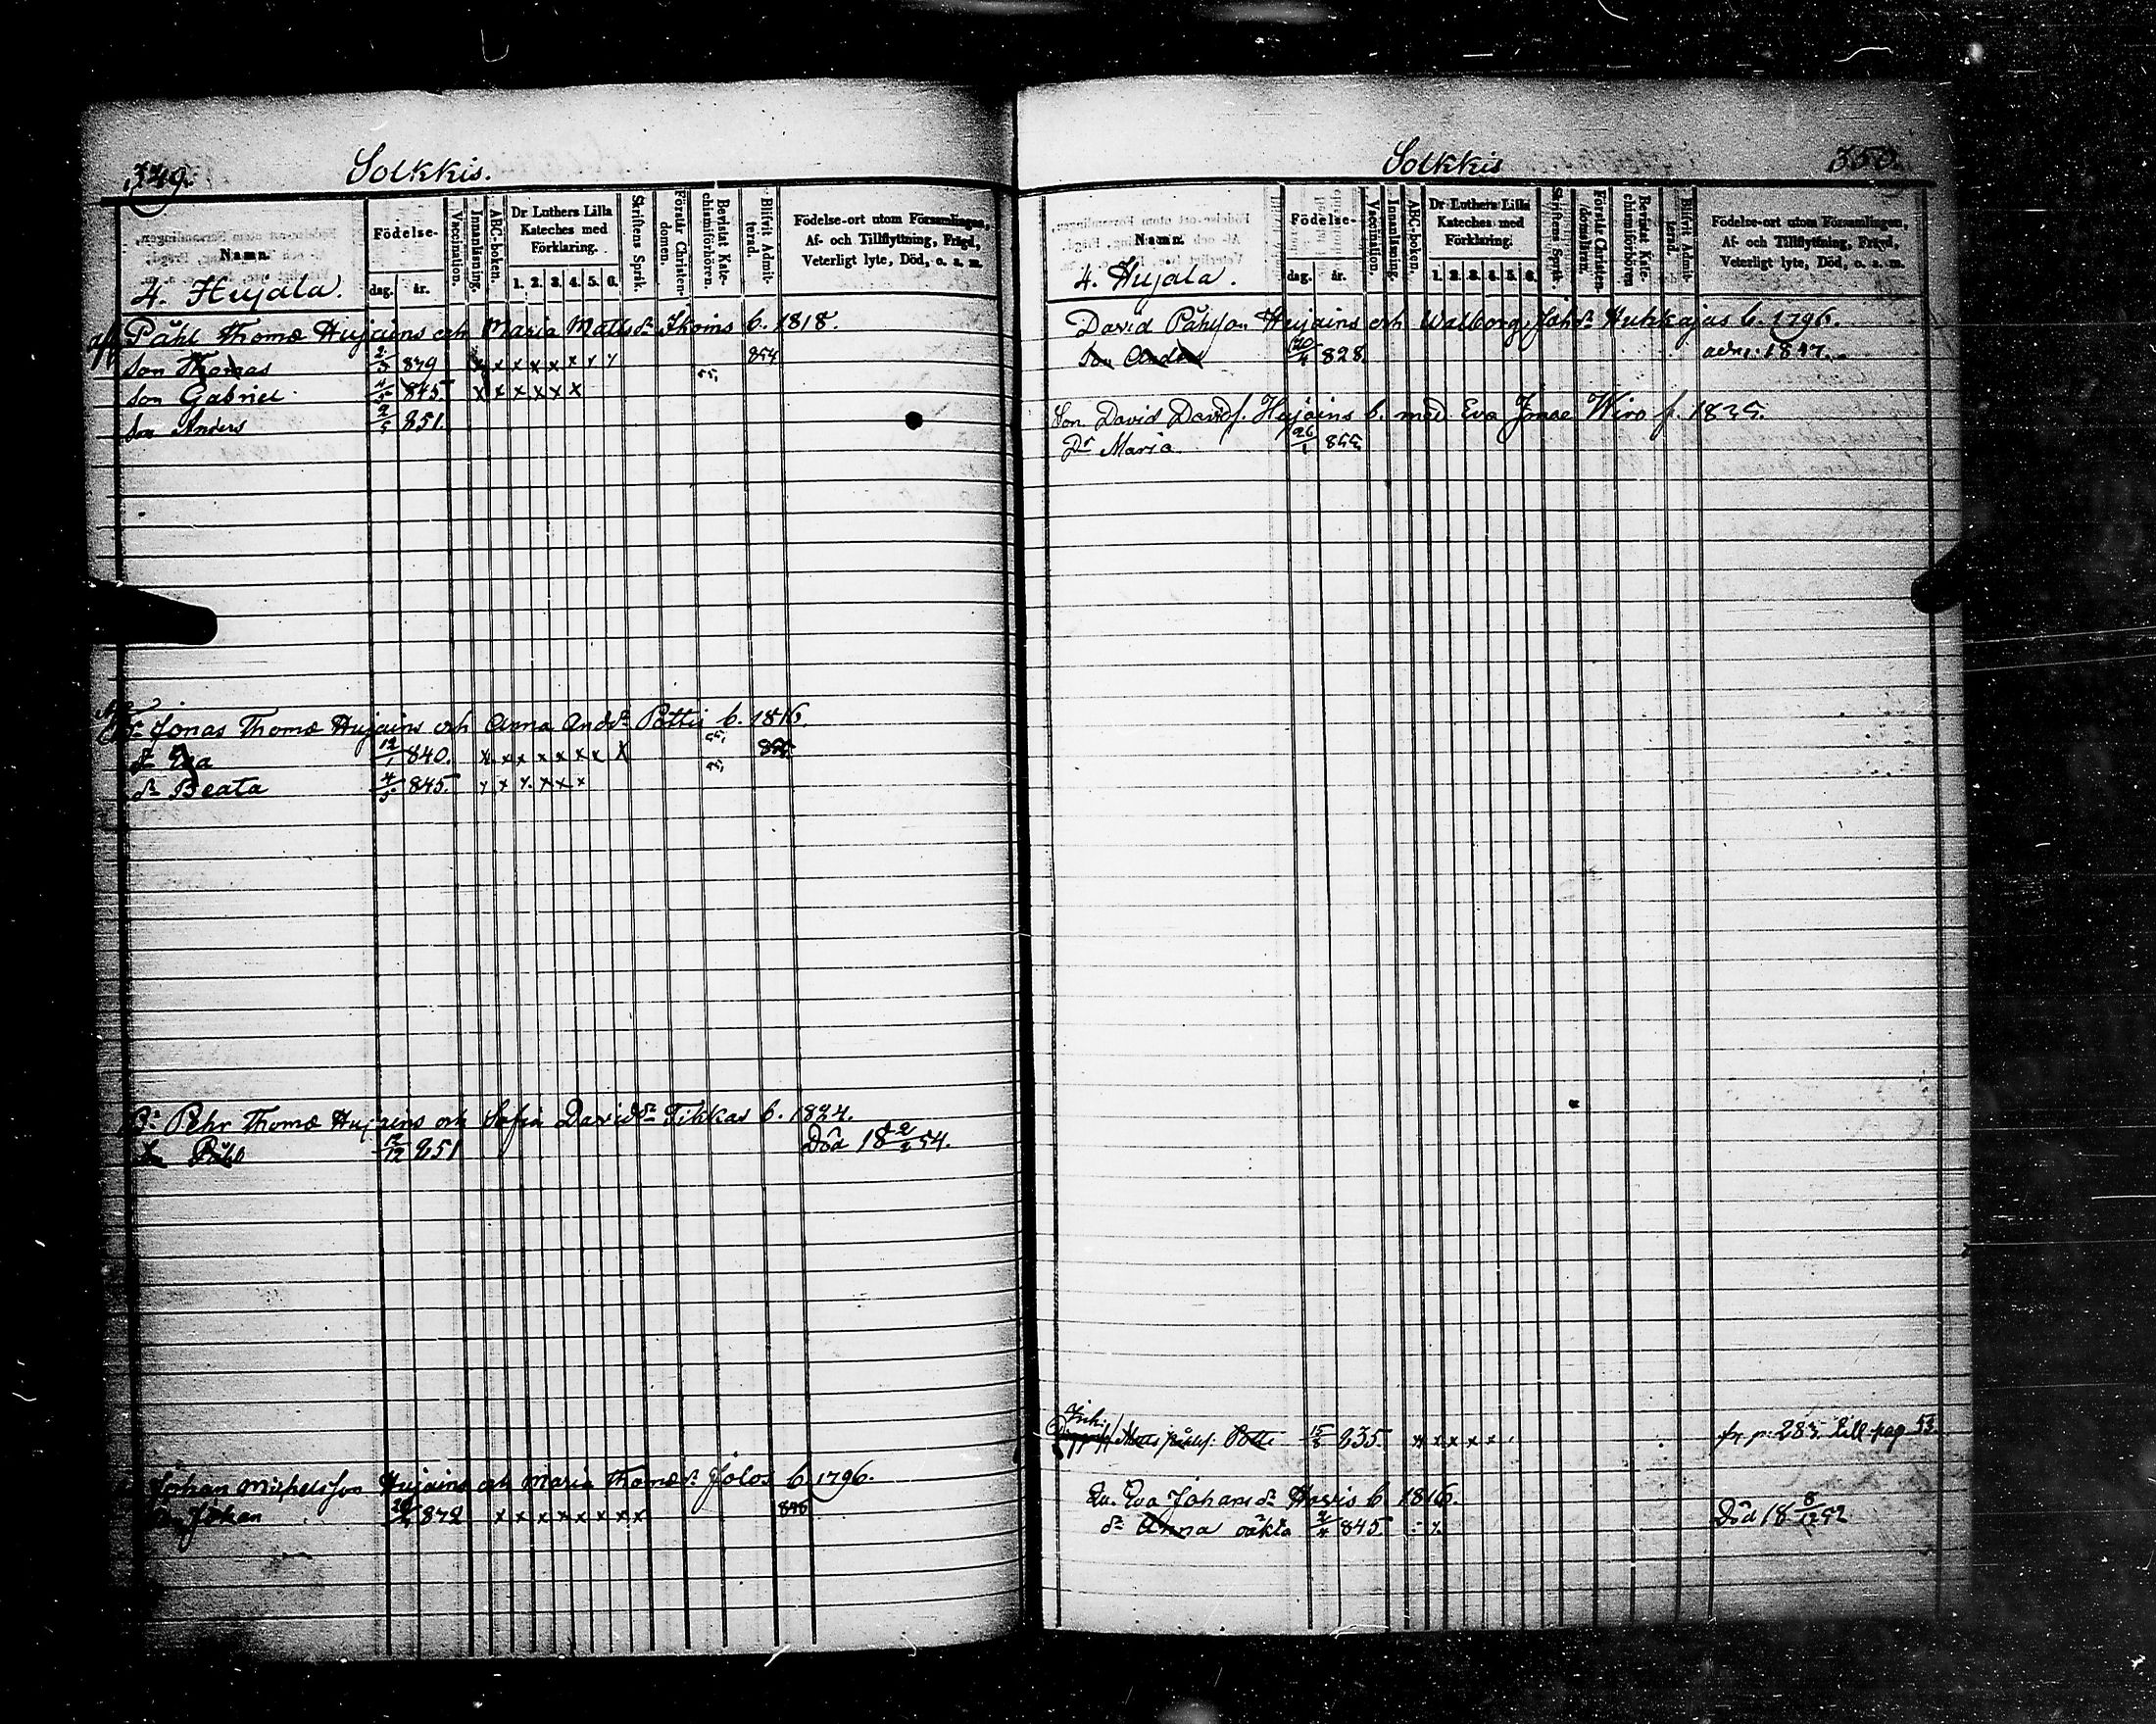 349.
Solkkis.
Namn.
Födelse-
dag. år.
Vaccination.
Innanläsning.
ABC-boken.
Dr Luthers Lilla Kateches med Förklaring.
1. 2. 3. 4. 5. 6.
Skriftens Språk.
Förstår Christendomen.
Bevistat Katechismiförhören.
Blifvit Admitterad.
Födelse-ort utom Församlingen,
Af- och Tillflyttning, Frägd,
Veterligt lyte, Död, o. s. m.
4. Hujala.
Påhl Thomæ Hujains och Maria Matts dr Ihoins b. 1818.
Son Thomas 2/3 839 x x x x x x x x 854
Son Gabriel 4/5 845 x x x x x x 55,
Son Anders 2/5 851
Br Jonas Thomæ Hujains och Anna And. dr Pottis b. 1816.
dr Eva 12/1 840. x x x x x x x x 55,
dr Beata 4/5 845. x x x x x x 55,
Br Pehr Thomæ Hujains och Sofia David dr Tikkas b. 1824.
Son Påhl 12/12 851 Död 18 22/2 54.
Johan Michelsson Hujains och Maria Thomæ dr Jolos b. 1796.
Son Johan 842 x x x x x x x x
350.
Solkkis
Namn.
Födelse-
dag. år.
Vaccination.
Innanläsning.
ABC-boken.
Dr Luthers Lilla Kateches med Förklaring.
1. 2. 3. 4. 5. 6.
Skriftens Språk.
Förstår Christendomen.
Bevistat Katechismiförhören
Blifvit Admitterad.
Födelse-ort utom Församlingen,
Af- och Tillflyttning, Frägd,
Veterligt lyte, Död, o. s. m.
4. Hujala.
David Påhlson Hujains och Walborg Joh. dr Hukkajas b. 1796.
Son Anders 20/4 828 adm. 1847.
Son David Davids. Hujains b. med Eva Jonæ Wiro f. 1835.
Dr Maria 26/1 855
Inh. Matts Påhls. Potti 15/8 835. x x x x x fr. p. 283. till pag 53
Qv. Eva Johans dr Harvis b. 1816.
dr Anna oäkta 2/4 845 Död 18 8/12 52